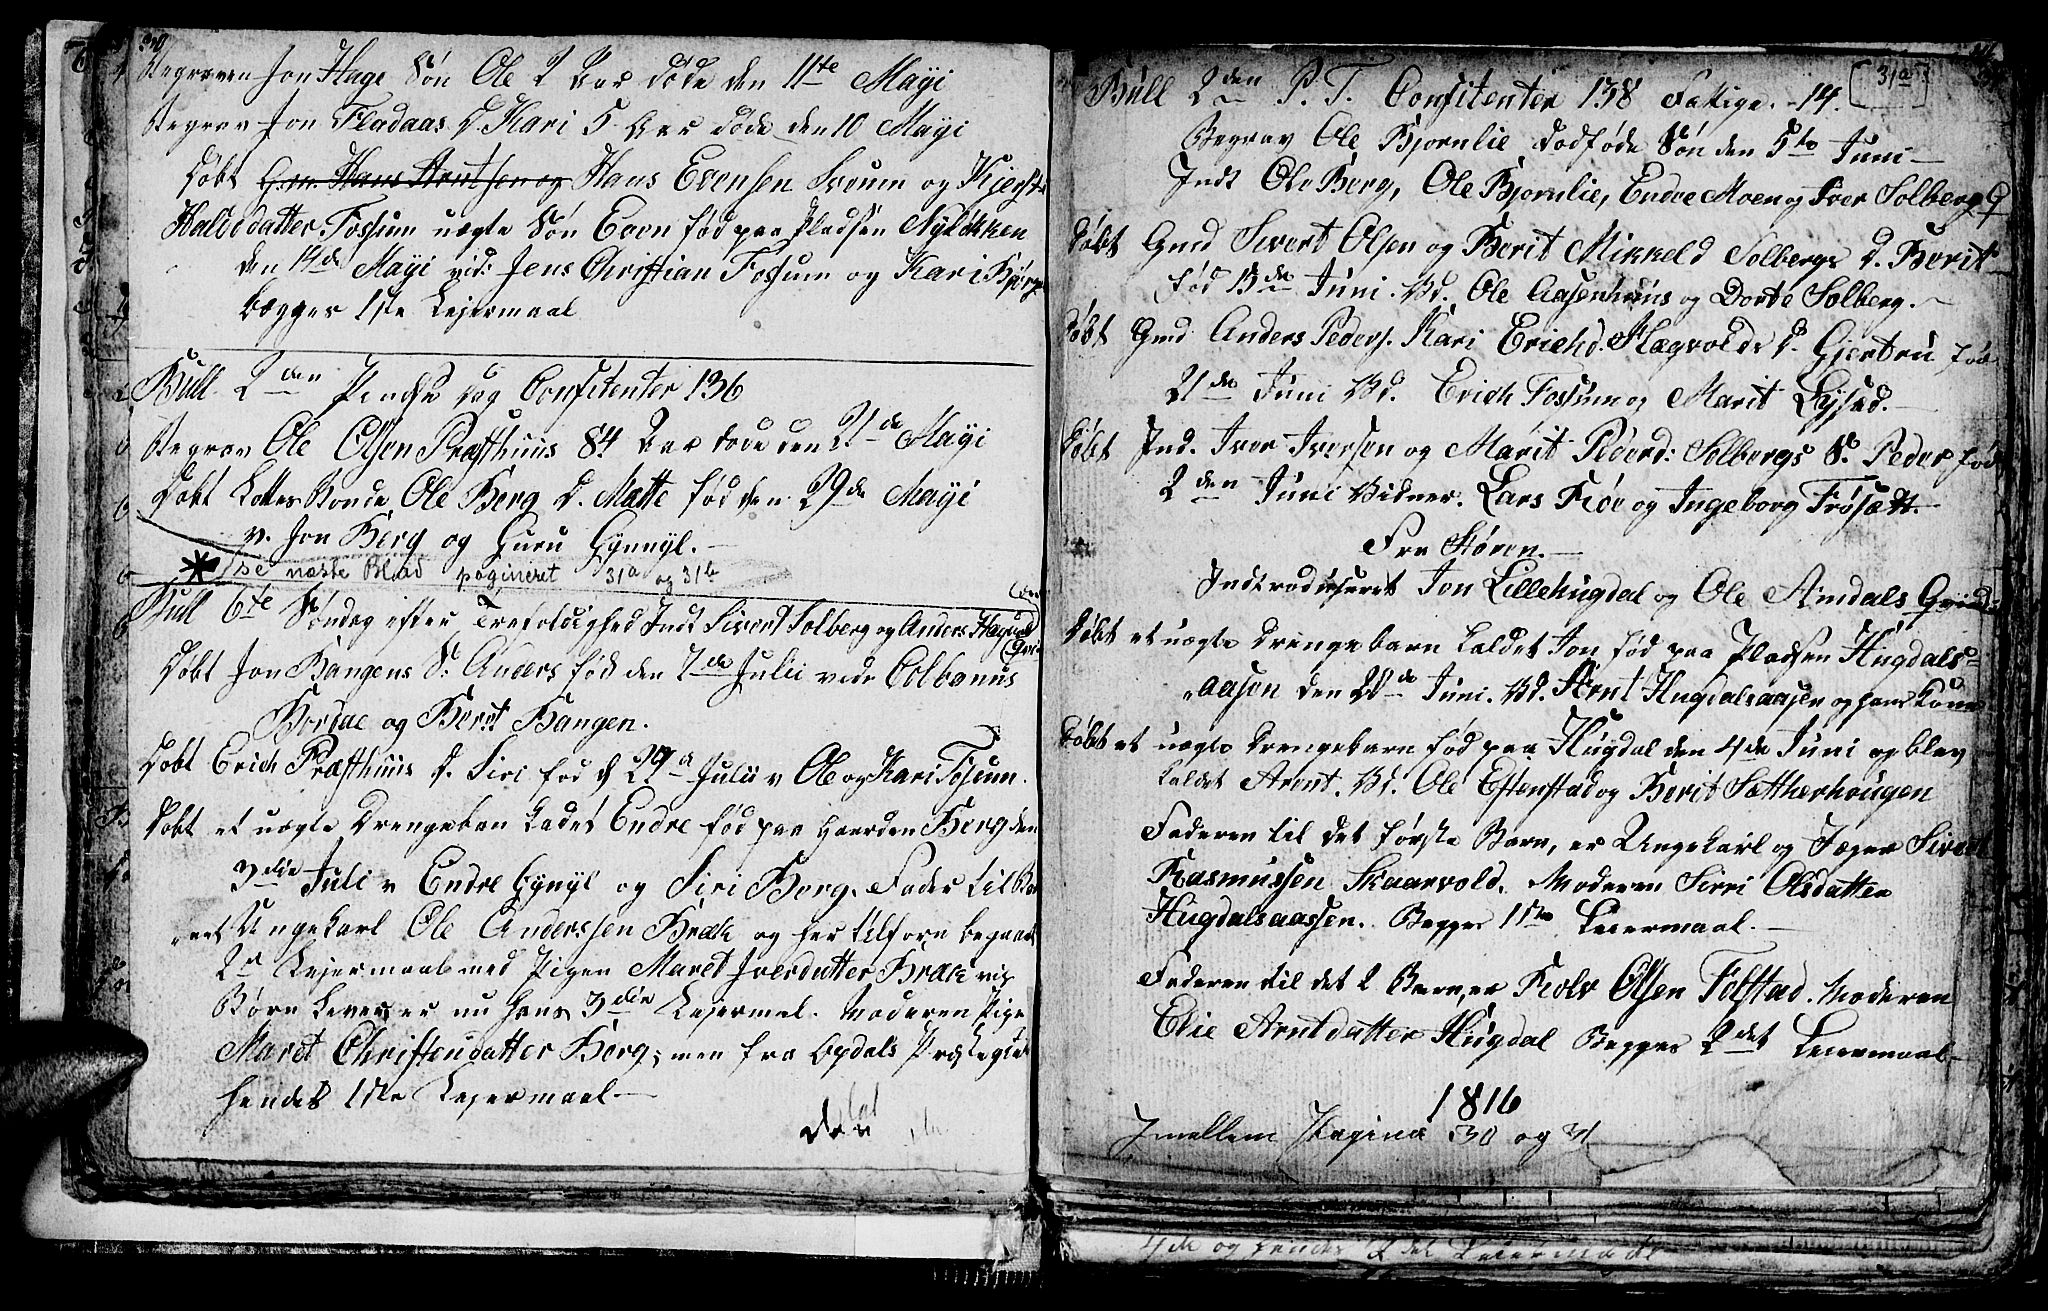 30
Begraven Jon Hage Søn Ole 2 Aar døde den 11te Mayi
Begrav Jon Fladaas D. Kari 5 Aar døde den 10 Mayi
Døbt Hans Evensen Sveum og Kjersti
Halvdatter Fossum uægte Søn Even fød paa Pladsen Nyløkken
den 14de Mayi vid: Jens Christian Fossum og Kari Bjørge
begges 1ste Lejermaal
Bull 2den Pindse Dag Confitenter 136
Begrav Ole Olsen Præsthuus 84 Aar døde den 21de Mayi
Døbt Ole Berg D. Mætte fød den 29de Mayi
v. Jon Berg og Guru Gynnyl.
* se næste Blad pagineret 31a og 31b
Bull 6te Søndag efter Trefoldighed Indt Sivert Solberg og Anders
Døbt Jon Bangens S. Anders fød den 7de Julii vidr Colbanus
Bordal og Berit Bangen.
Døbt Erich Præsthuus D. Siri fød d 29 Julii v Ole og Kari Fossum.
Døbt et uægte Drengeban kaldet Endre fød paa Gaarden Berg den
3die Juli v Endre Gynyl og Siri Berg. Fader til Bar
net Ungekarl Ole Anderssen Bræk og har tilforn begaaet
2de Lejermaal med Pigen Maret Iversdatter Bræk
Børn lever er nu hans 3die Lejermal. Moderen Pige
Maret Christensdatter Berg, men fra Opdals Præstegield
hendes 1ste Lejermaal
Bull 2den P. T. Confitenter 138 Fattige. 14.
[31a]
Begrav Ole Bjornlie dødføde Søn den 5te Juni
Indt Ole Berg, Ole Bjornlie, Endre Moen og Iver Solberg Q
Døbt Gmd Sivert Olsen og Berit Mikkelsd Solbergs D. Berit
fød Juni. Vd. Ole Aasenhuus og Dorte Solberg.
Døbt Gmd Anders Peders. Kari Erichd. Hagvolds D. Gjertru fød
21de Juni Vd. Erich Fossum og Marit Lysed.
Døbt Ind. Iver Iversen og Marit Pedersd: Solbergs S. Peder fød
2den Juni Vidner. Lars Røe og Ingeborg Frøsætt.
Fra Støren.
Indtroduseret Jon Lillehugdal og Ole Amdals Qvinde
Døbt et uægte Drengebarn kaldet Jon fød paa Pladsen Hugdals-
aasen den 20de Juni. Vd. Arnt Hugdalsaasen og hans Kone
Døbt et uægte Drengebarn fød paa Hugdal den 4de Juni og blev
kaldet Arent. Vd. Ole Estenstad og Berit Sætherhougen
Faderen til det første Barn, er Ungekarl og Jæger Sivert
Rasmussen Skaarvold. Moderen Sirri Olsdatter
Hugdalsaassen. Begges 1ste Leiermaal.
Faderen til det 2 Barn, er Rolv Olsen Folstad. Moderen
Elie Arntdatter Hugdal Begges 2det Leiermaal
1816
Imellem Pagina 30 og 31
4de og hendes 2det Leiermaal